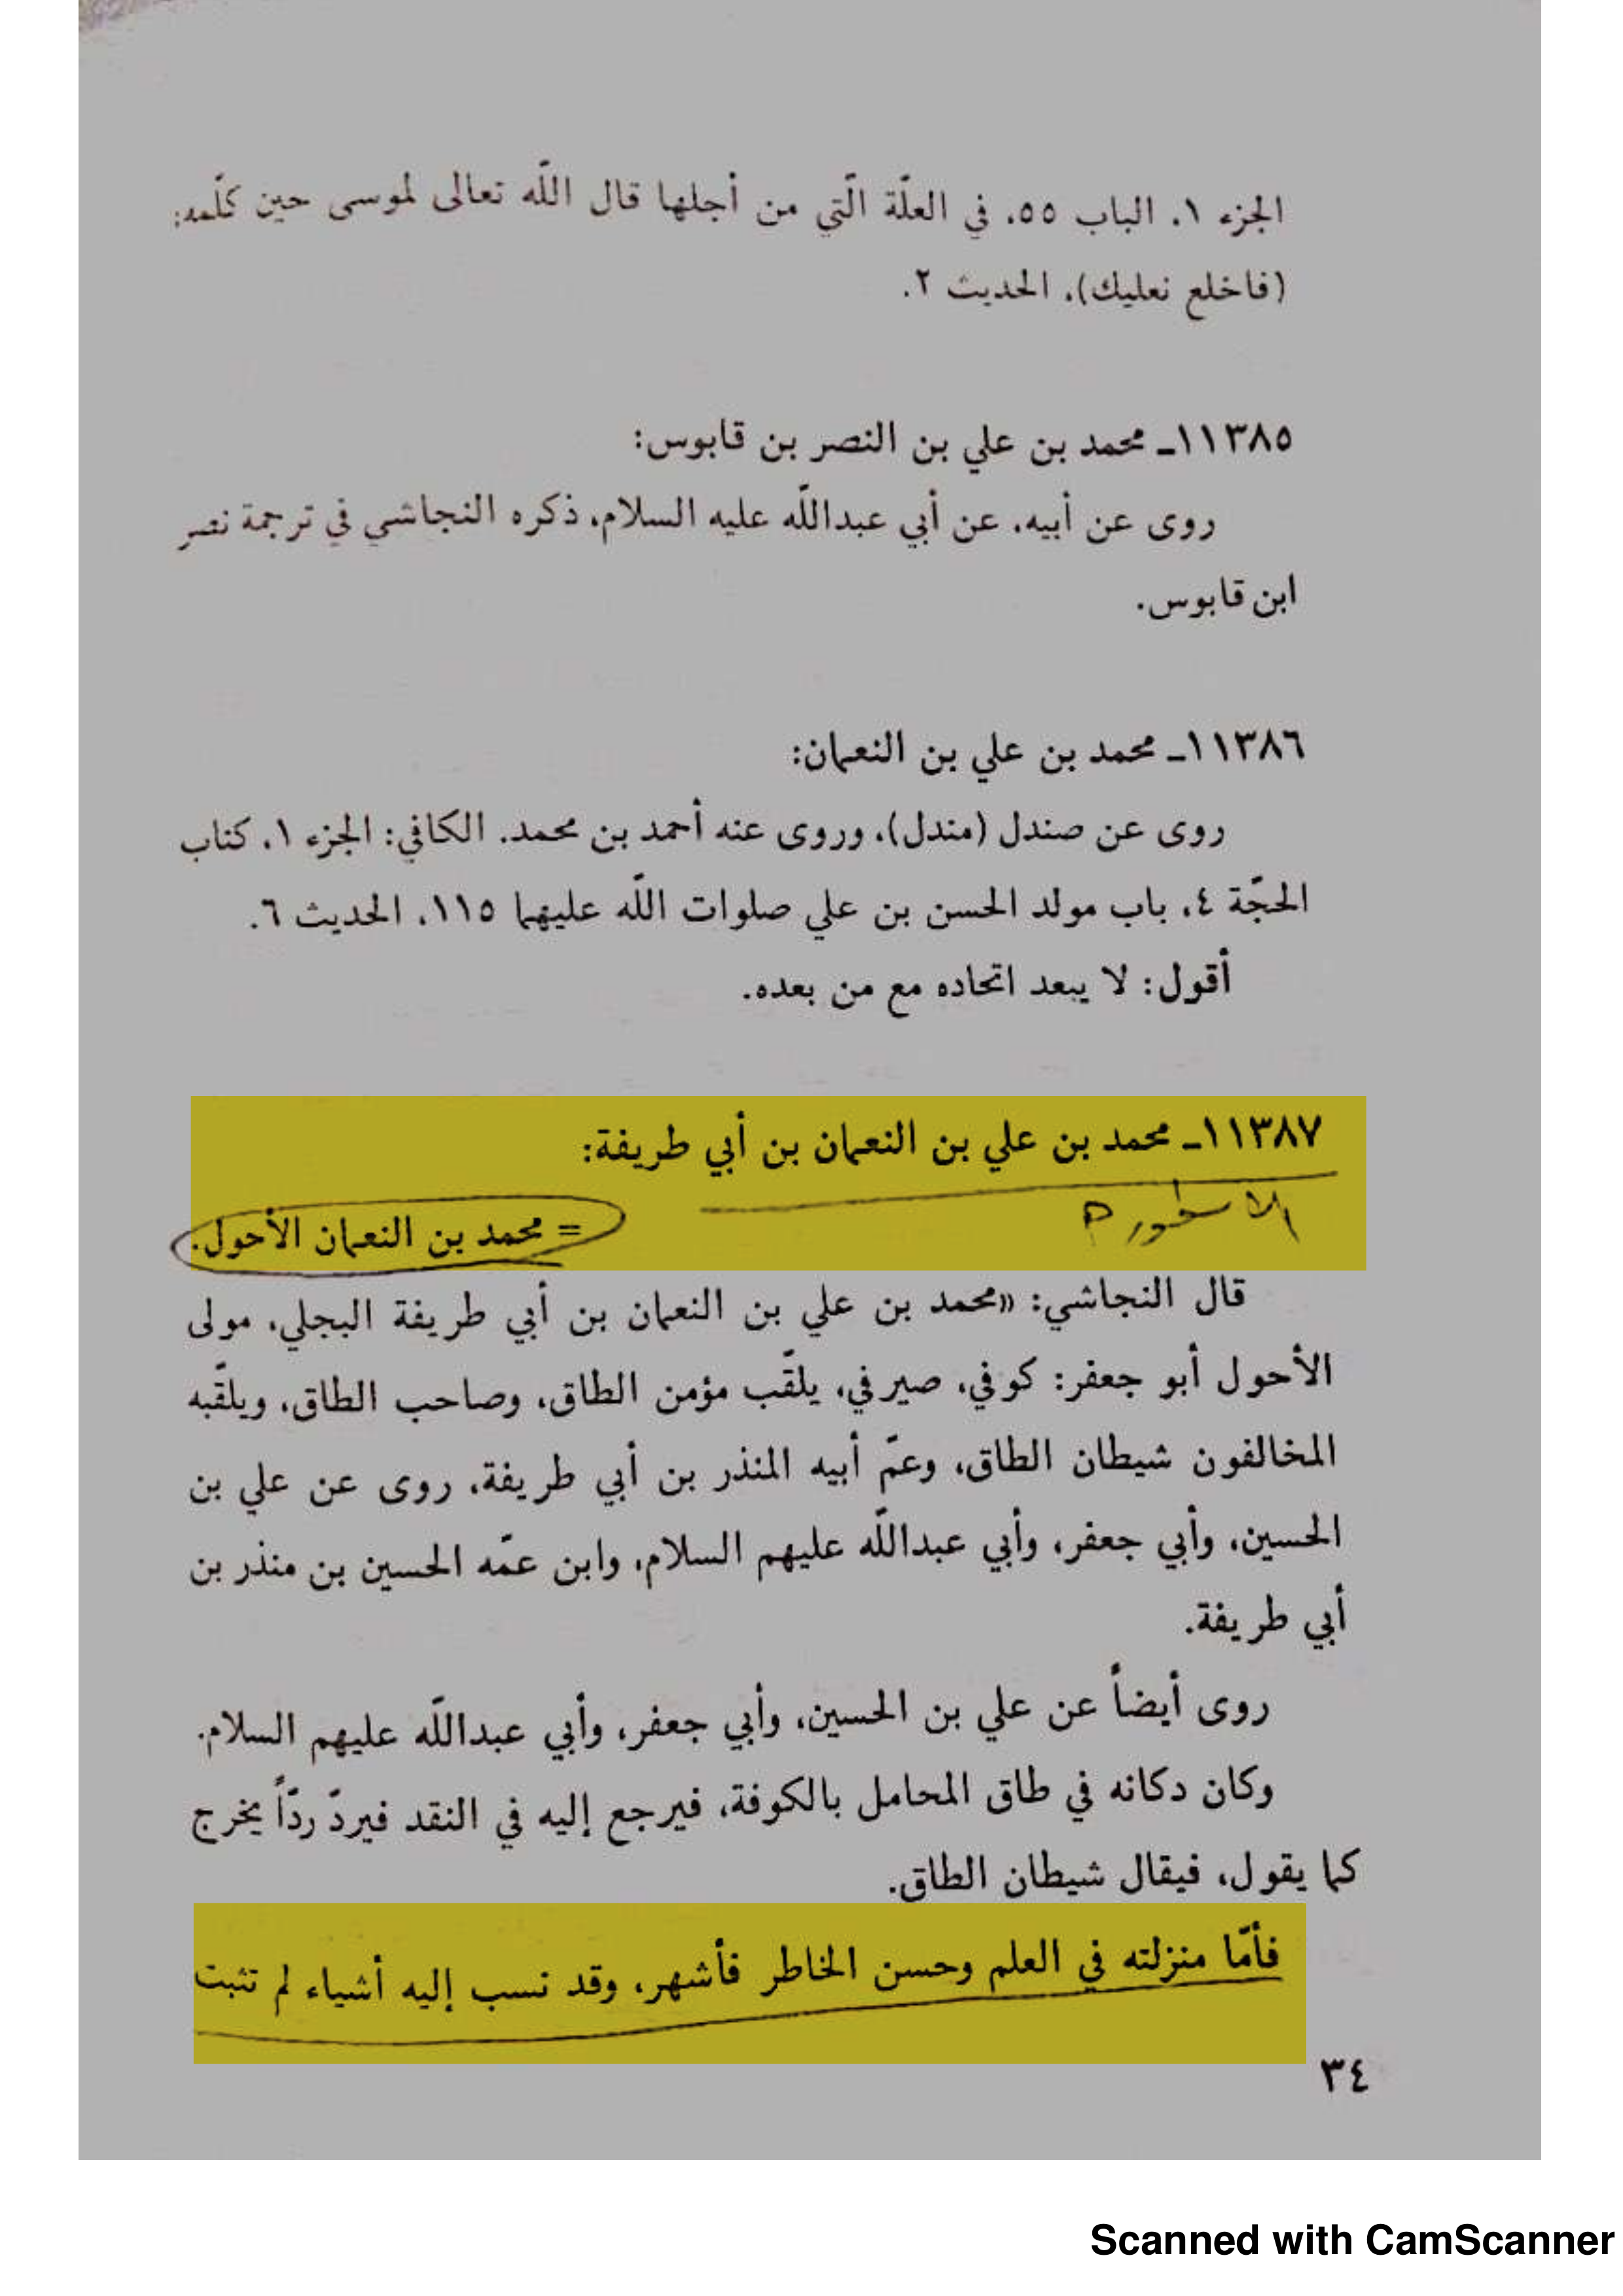 الجزء ١، الباب ٥٥، في العلّة الّتي من أجلها قال اللّه تعالى لموسى حين كلّمه:
(فاخلع نعليك)، الحديث ٢.
١١٣٨٥ـ محمد بن علي بن النصر بن قابوس:
روى عن أبيه، عن أبي عبداللّه عليه السلام، ذكره النجاشي في ترجمة نصر
ابن قابوس.
١١٣٨٦ـ محمد بن علي بن النعمان:
روى عن صندل (مندل)، وروى عنه أحمد بن محمد. الكافي: الجزء ١، كتاب
الحجّة ٤، باب مولد الحسن بن علي صلوات اللّه عليهما ١١٥، الحديث ٦.
أقول: لا يبعد اتحاده مع من بعده.
١١٣٨٧ـ محمد بن علي بن النعمان بن أبي طريفة:
الاسطورة
= محمد بن النعمان الأحول.
قال النجاشي: «محمد بن علي بن النعمان بن أبي طريفة البجلي، مولى
الأحول أبو جعفر: كوفي، صيرفي، يلقّب مؤمن الطاق، وصاحب الطاق، ويلقّبه
المخالفون شيطان الطاق، وعمّ أبيه المنذر بن أبي طريفة، روى عن علي بن
الحسين، وأبي جعفر، وأبي عبداللّه عليهم السلام، وابن عمّه الحسين بن منذر بن
أبي طريفة.
روى أيضاً عن علي بن الحسين، وأبي جعفر، وأبي عبداللّه عليهم السلام.
وكان دكانه في طاق المحامل بالكوفة، فيرجع إليه في النقد فيردّ ردّاً يخرج
كما يقول، فيقال شيطان الطاق.
فأمّا منزلته في العلم وحسن الخاطر فأشهر، وقد نسب إليه أشياء لم تثبت
٣٤
Scanned with CamScanner